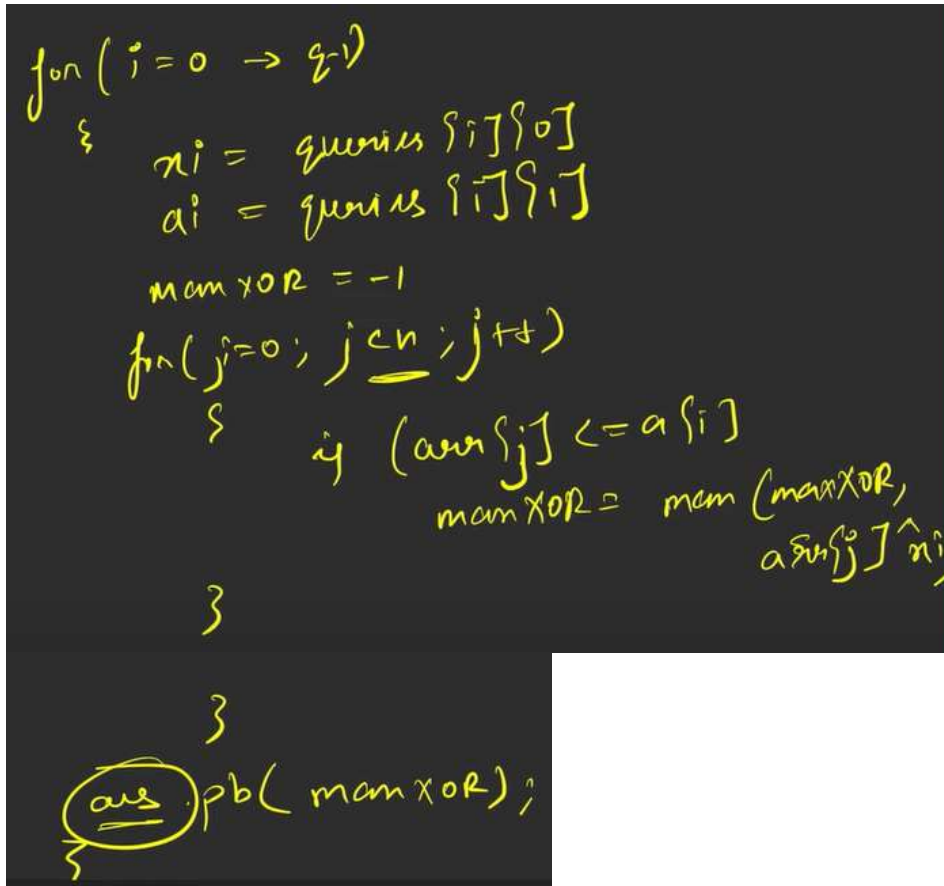 for (i = 0 → q-1)
{
xi = queries [i][0]
ai = queries [i][1]
maxXOR = -1
for(j=0; j<n; j++)
{
if (arr[j] <= a[i]
maxXOR = max (maxXOR,
arr[j]^xi)
}
}
ans.pb( maxXOR);
}